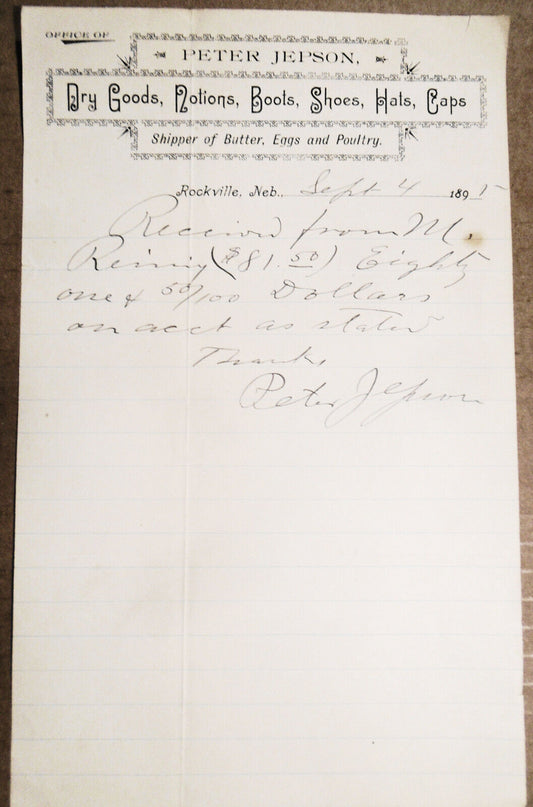 OFFICE OF
PETER JEPSON,
Dry Goods, Notions, Boots, Shoes, Hats, Caps
Shipper of Butter, Eggs and Poultry.
Rockville, Neb., Sept 4 1895
Received from M.
($81.50) Eighty
one & 50/100 Dollars
on acct as stated
Thanks
Peter Jepson